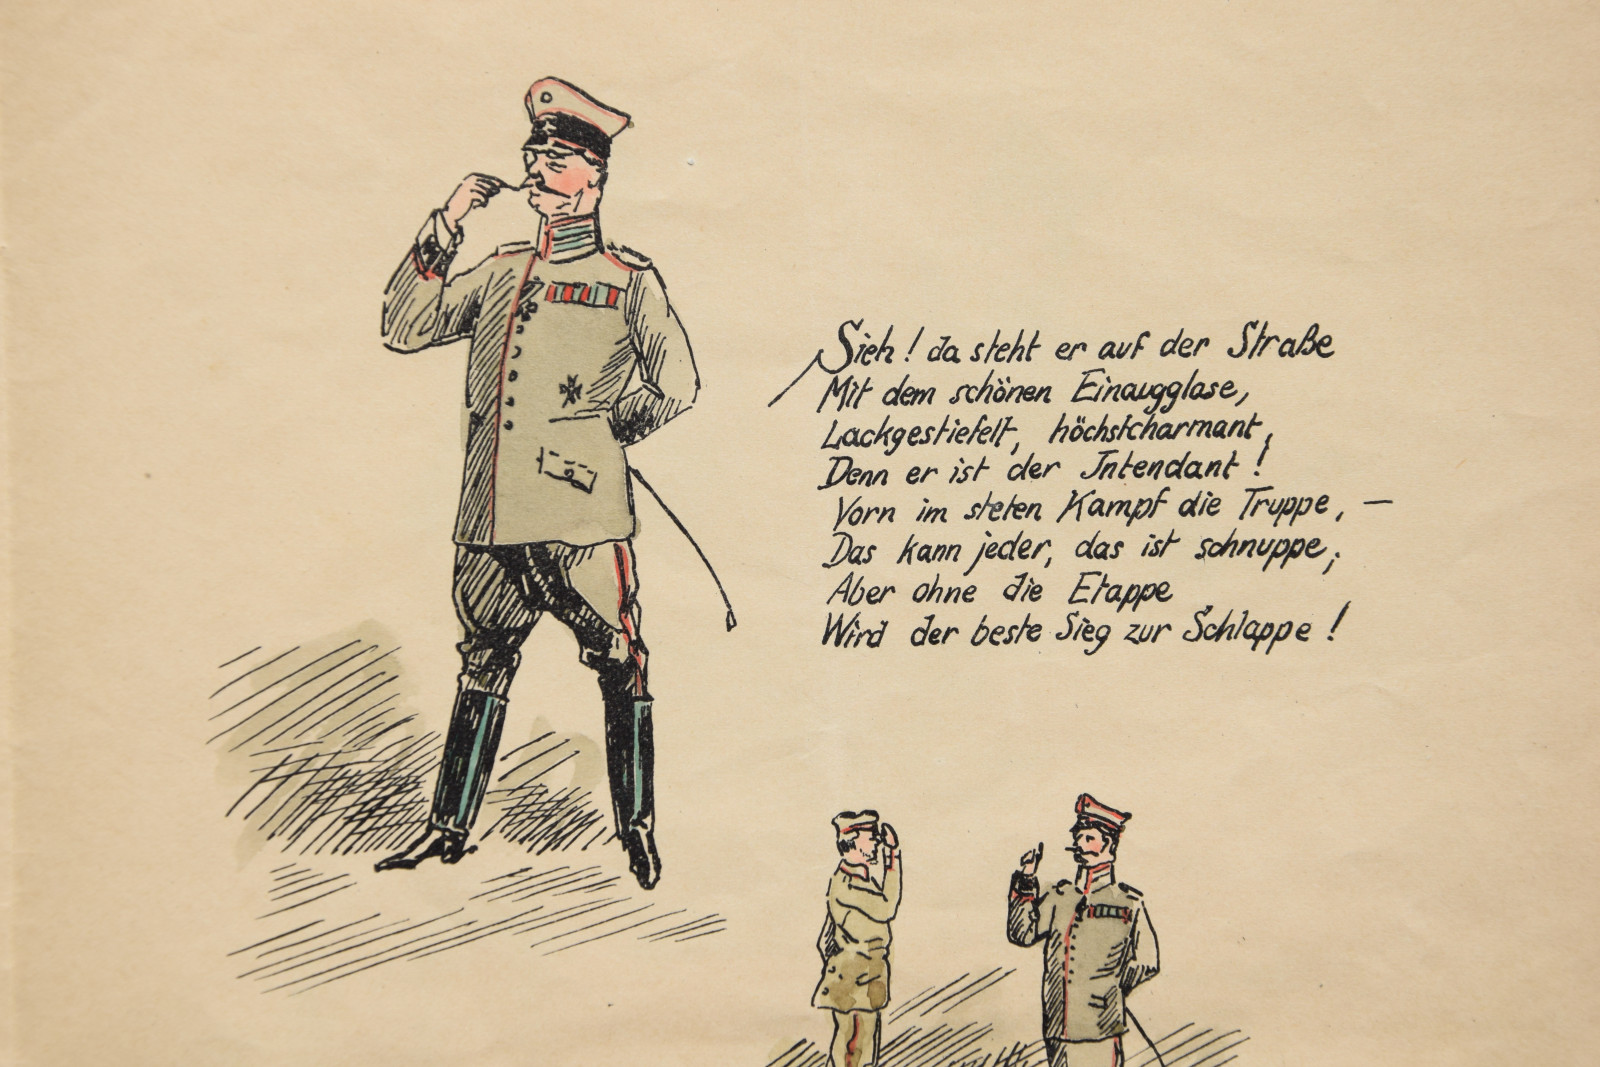 Sieh! da steht er auf der Straße
Mit dem schönen Einaugglase,
Lackgestiefelt, höchstcharmant,
Denn er ist der Intendant!
Vorn im steten Kampf die Truppe, —
Das kann jeder, das ist schnuppe;
Aber ohne die Etappe
Wird der beste Sieg zur Schlappe!